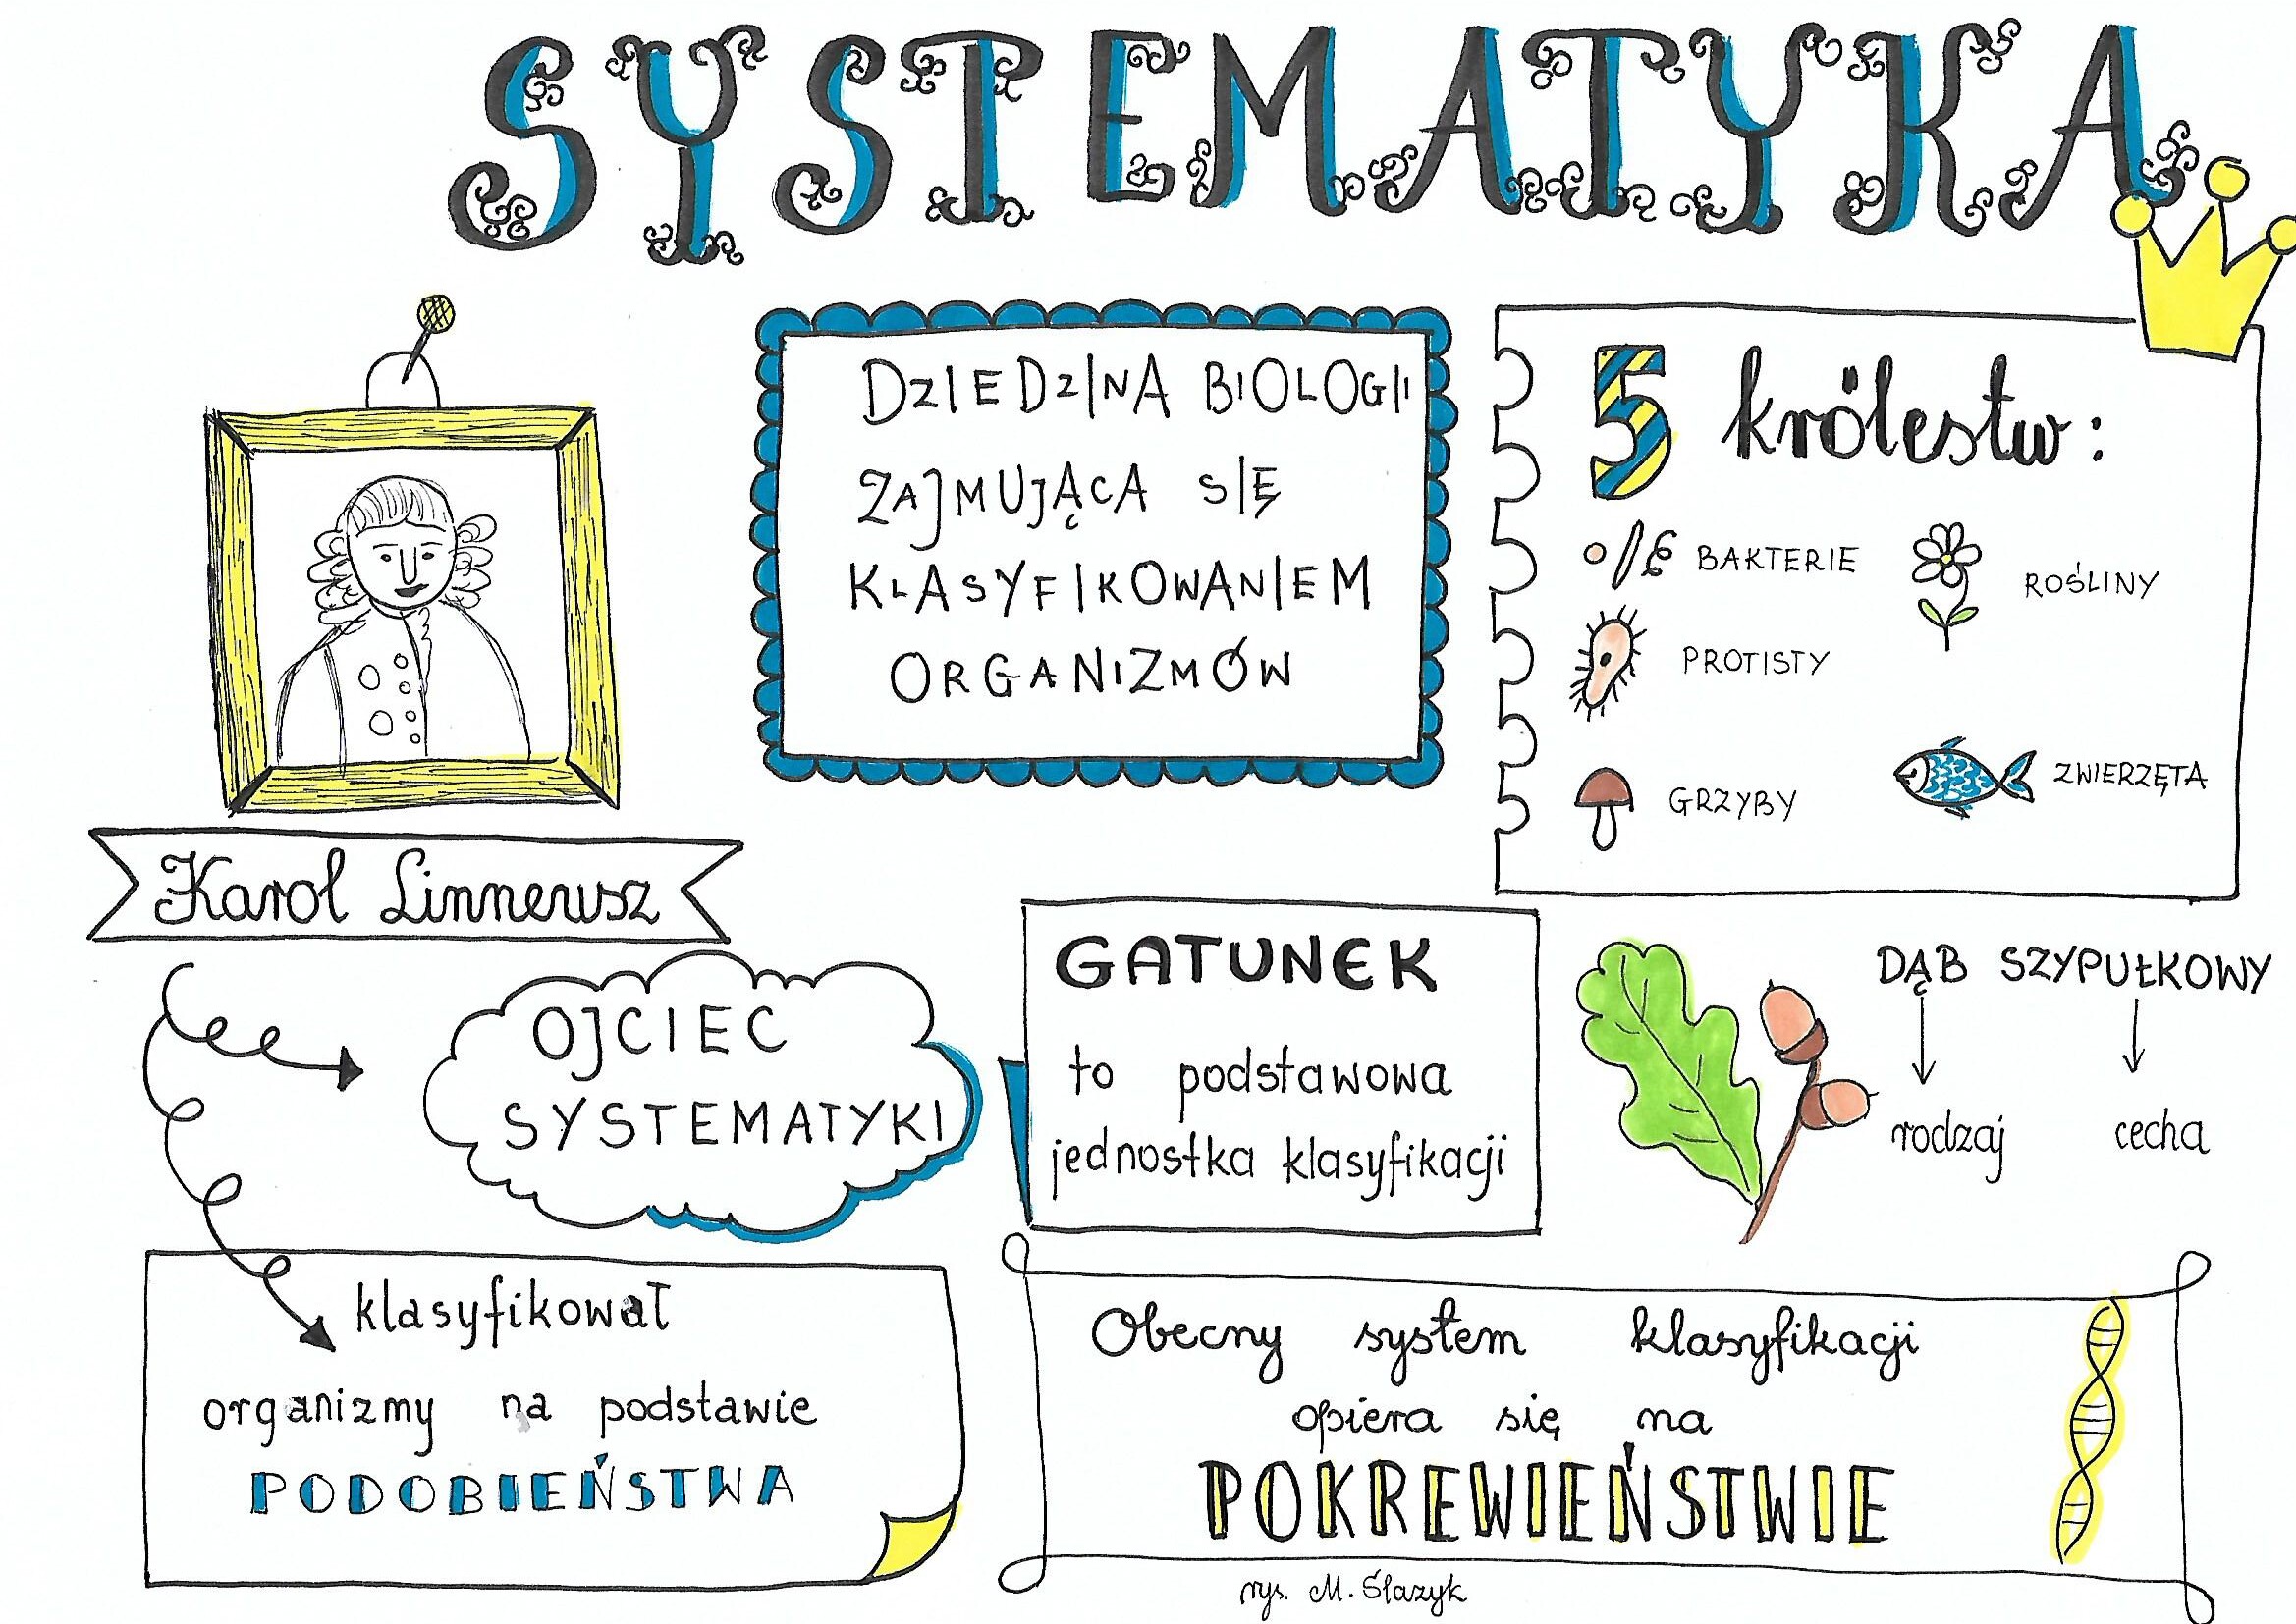 SYSTEMATYKA
DZIEDZINA BIOLOGII
ZAJMUJĄCA SIĘ
KLASYFIKOWANIEM
ORGANIZMÓW
5 królestw:
BAKTERIE
ROŚLINY
PROTISTY
GRZYBY
ZWIERZĘTA
Karol Linneusz
OJCIEC
SYSTEMATYKI
GATUNEK
to podstawowa
jednostka klasyfikacji
DĄB SZYPUŁKOWY
rodzaj cecha
klasyfikował
organizmy na podstawie
PODOBIEŃSTWA
Obecny system klasyfikacji
opiera się na
POKREWIEŃSTWIE
rys. M. Ślazyk